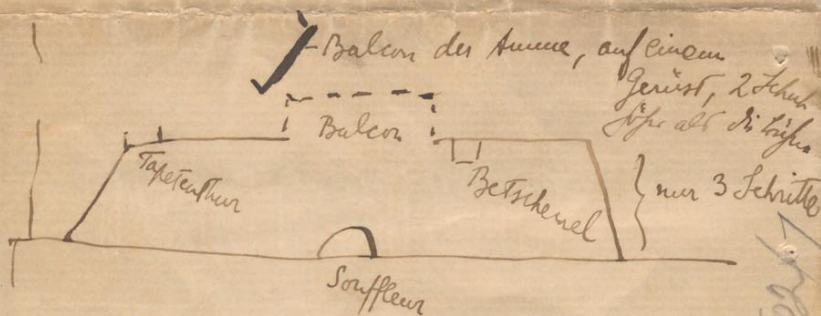 Balcon der Amme, auf einem
Gerüst, 2 Schuh
höher als die Bühne
Balcon
Tapetenthur
Betschemel
nur 3 Schritte
Souffleur